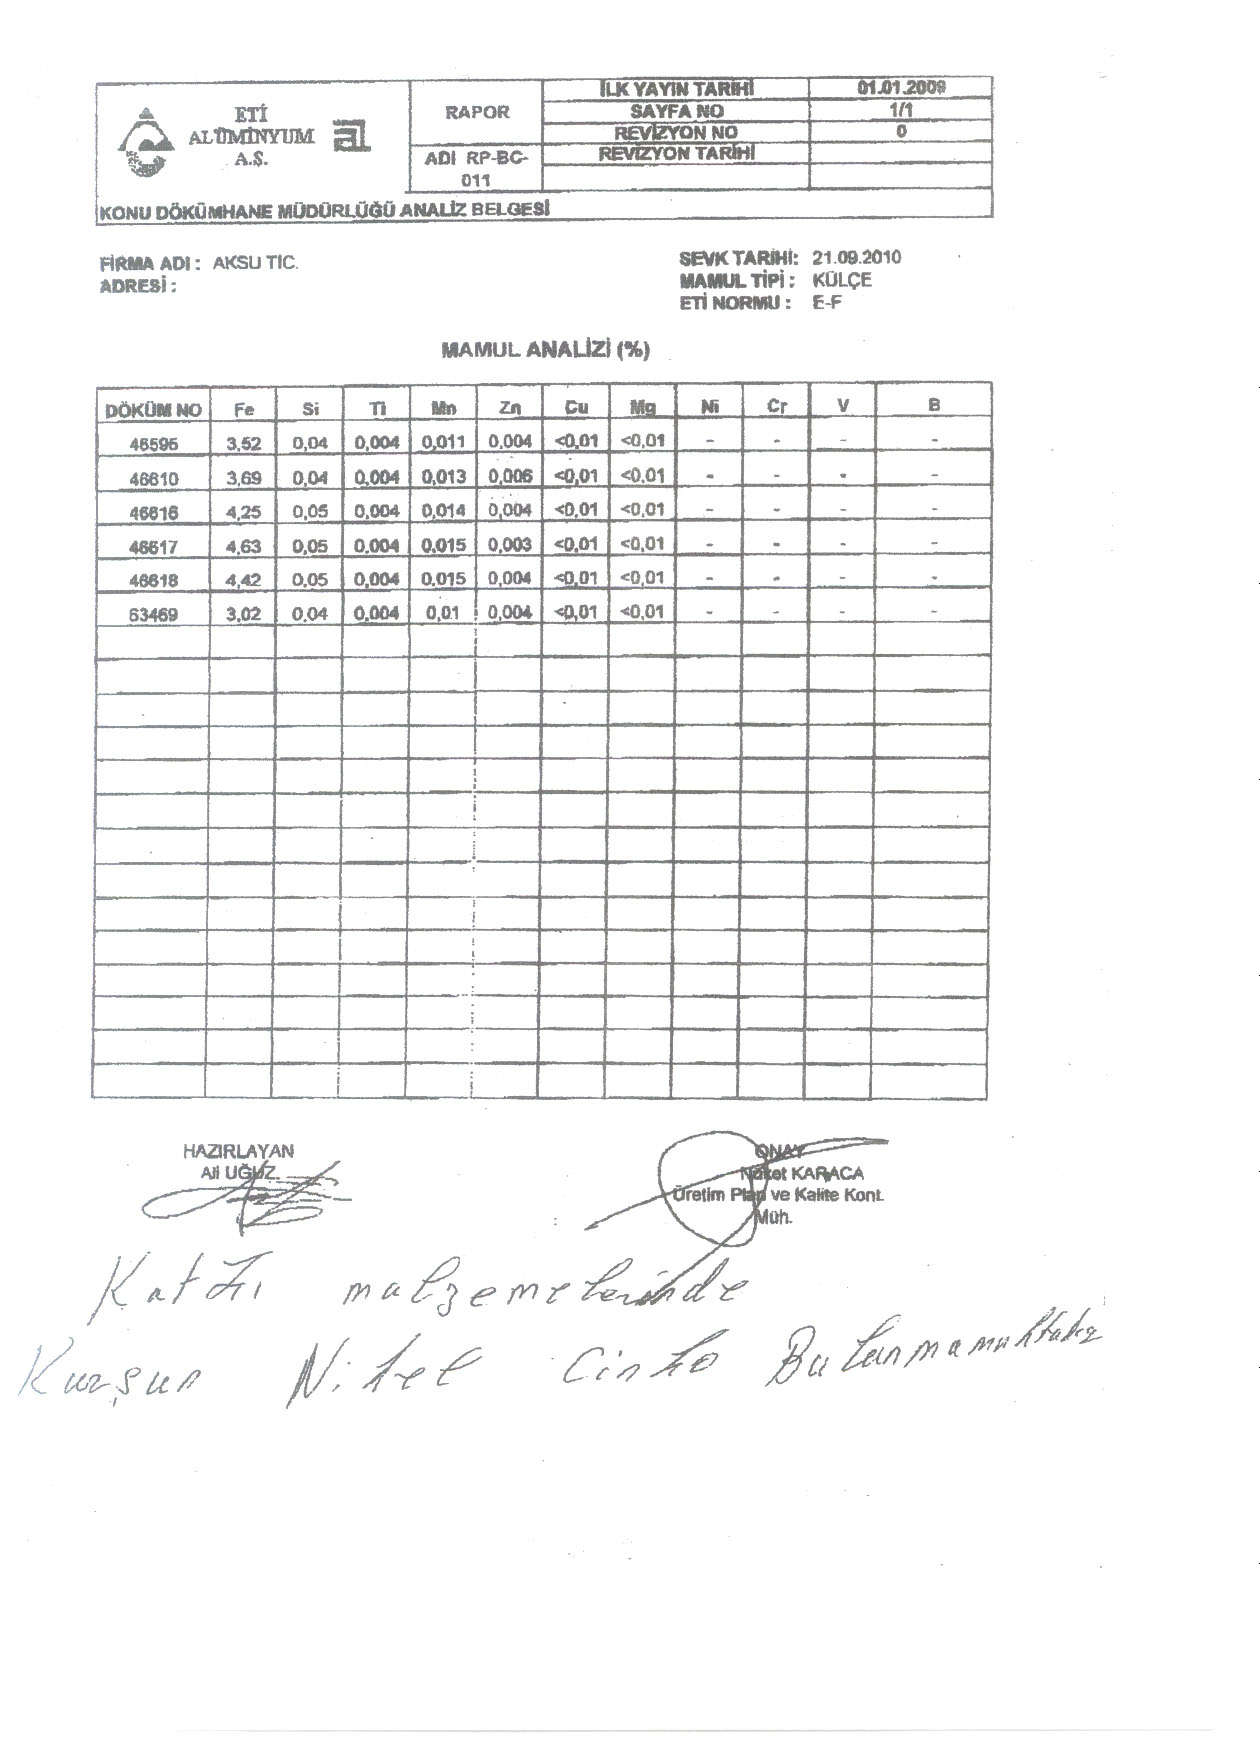 ETİ
ALÜMİNYUM
A.Ş.
RAPOR
ADI RP-BC-
011
İLK YAYIN TARİHİ 01.01.2009
SAYFA NO 1/1
REVİZYON NO 0
REVİZYON TARİHİ
KONU DÖKÜMHANE MÜDÜRLÜĞÜ ANALİZ BELGESİ
FİRMA ADI : AKSU TİC.
ADRESİ :
SEVK TARİHİ: 21.09.2010
MAMUL TİPİ : KÜLÇE
ETİ NORMU : E-F
MAMUL ANALİZİ (%)
DÖKÜM NO Fe Si Ti Mn Zn Cu Mg Ni Cr V B
46595 3,52 0,04 0,004 0,011 0,004 <0,01 <0,01 - - - -
46610 3,69 0,04 0,004 0,013 0,006 <0,01 <0,01 - - - -
46616 4,25 0,05 0,004 0,014 0,004 <0,01 <0,01 - - - -
46617 4,63 0,05 0,004 0,015 0,003 <0,01 <0,01 - - - -
46618 4,42 0,05 0,004 0,015 0,004 <0,01 <0,01 - - - -
53469 3,02 0,04 0,004 0,01 0,004 <0,01 <0,01 - - - -
HAZIRLAYAN
Ali UĞUZ.
ONAY
Nüket KARACA
Üretim Plan ve Kalite Kont.
Müh.
Katkı malzemelerinde
Kurşun Nikel Cinko Bulunmamaktadır